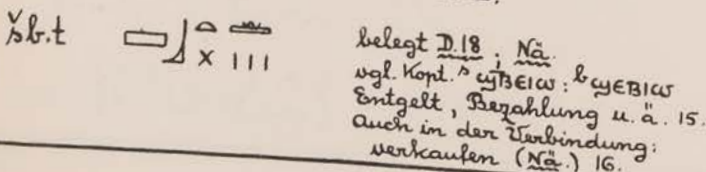 šb.t 𓈙𓃀𓏏𓏴𓏛𓏥 belegt D.18 ; Nä.
vgl. Kopt. ˢ ϣⲃⲉⲓⲱ : ᵇ ϣⲉⲃⲓⲱ
Entgelt, Bezahlung u. ä. 15.
Auch in der Verbindung:
verkaufen (Nä.) 16.